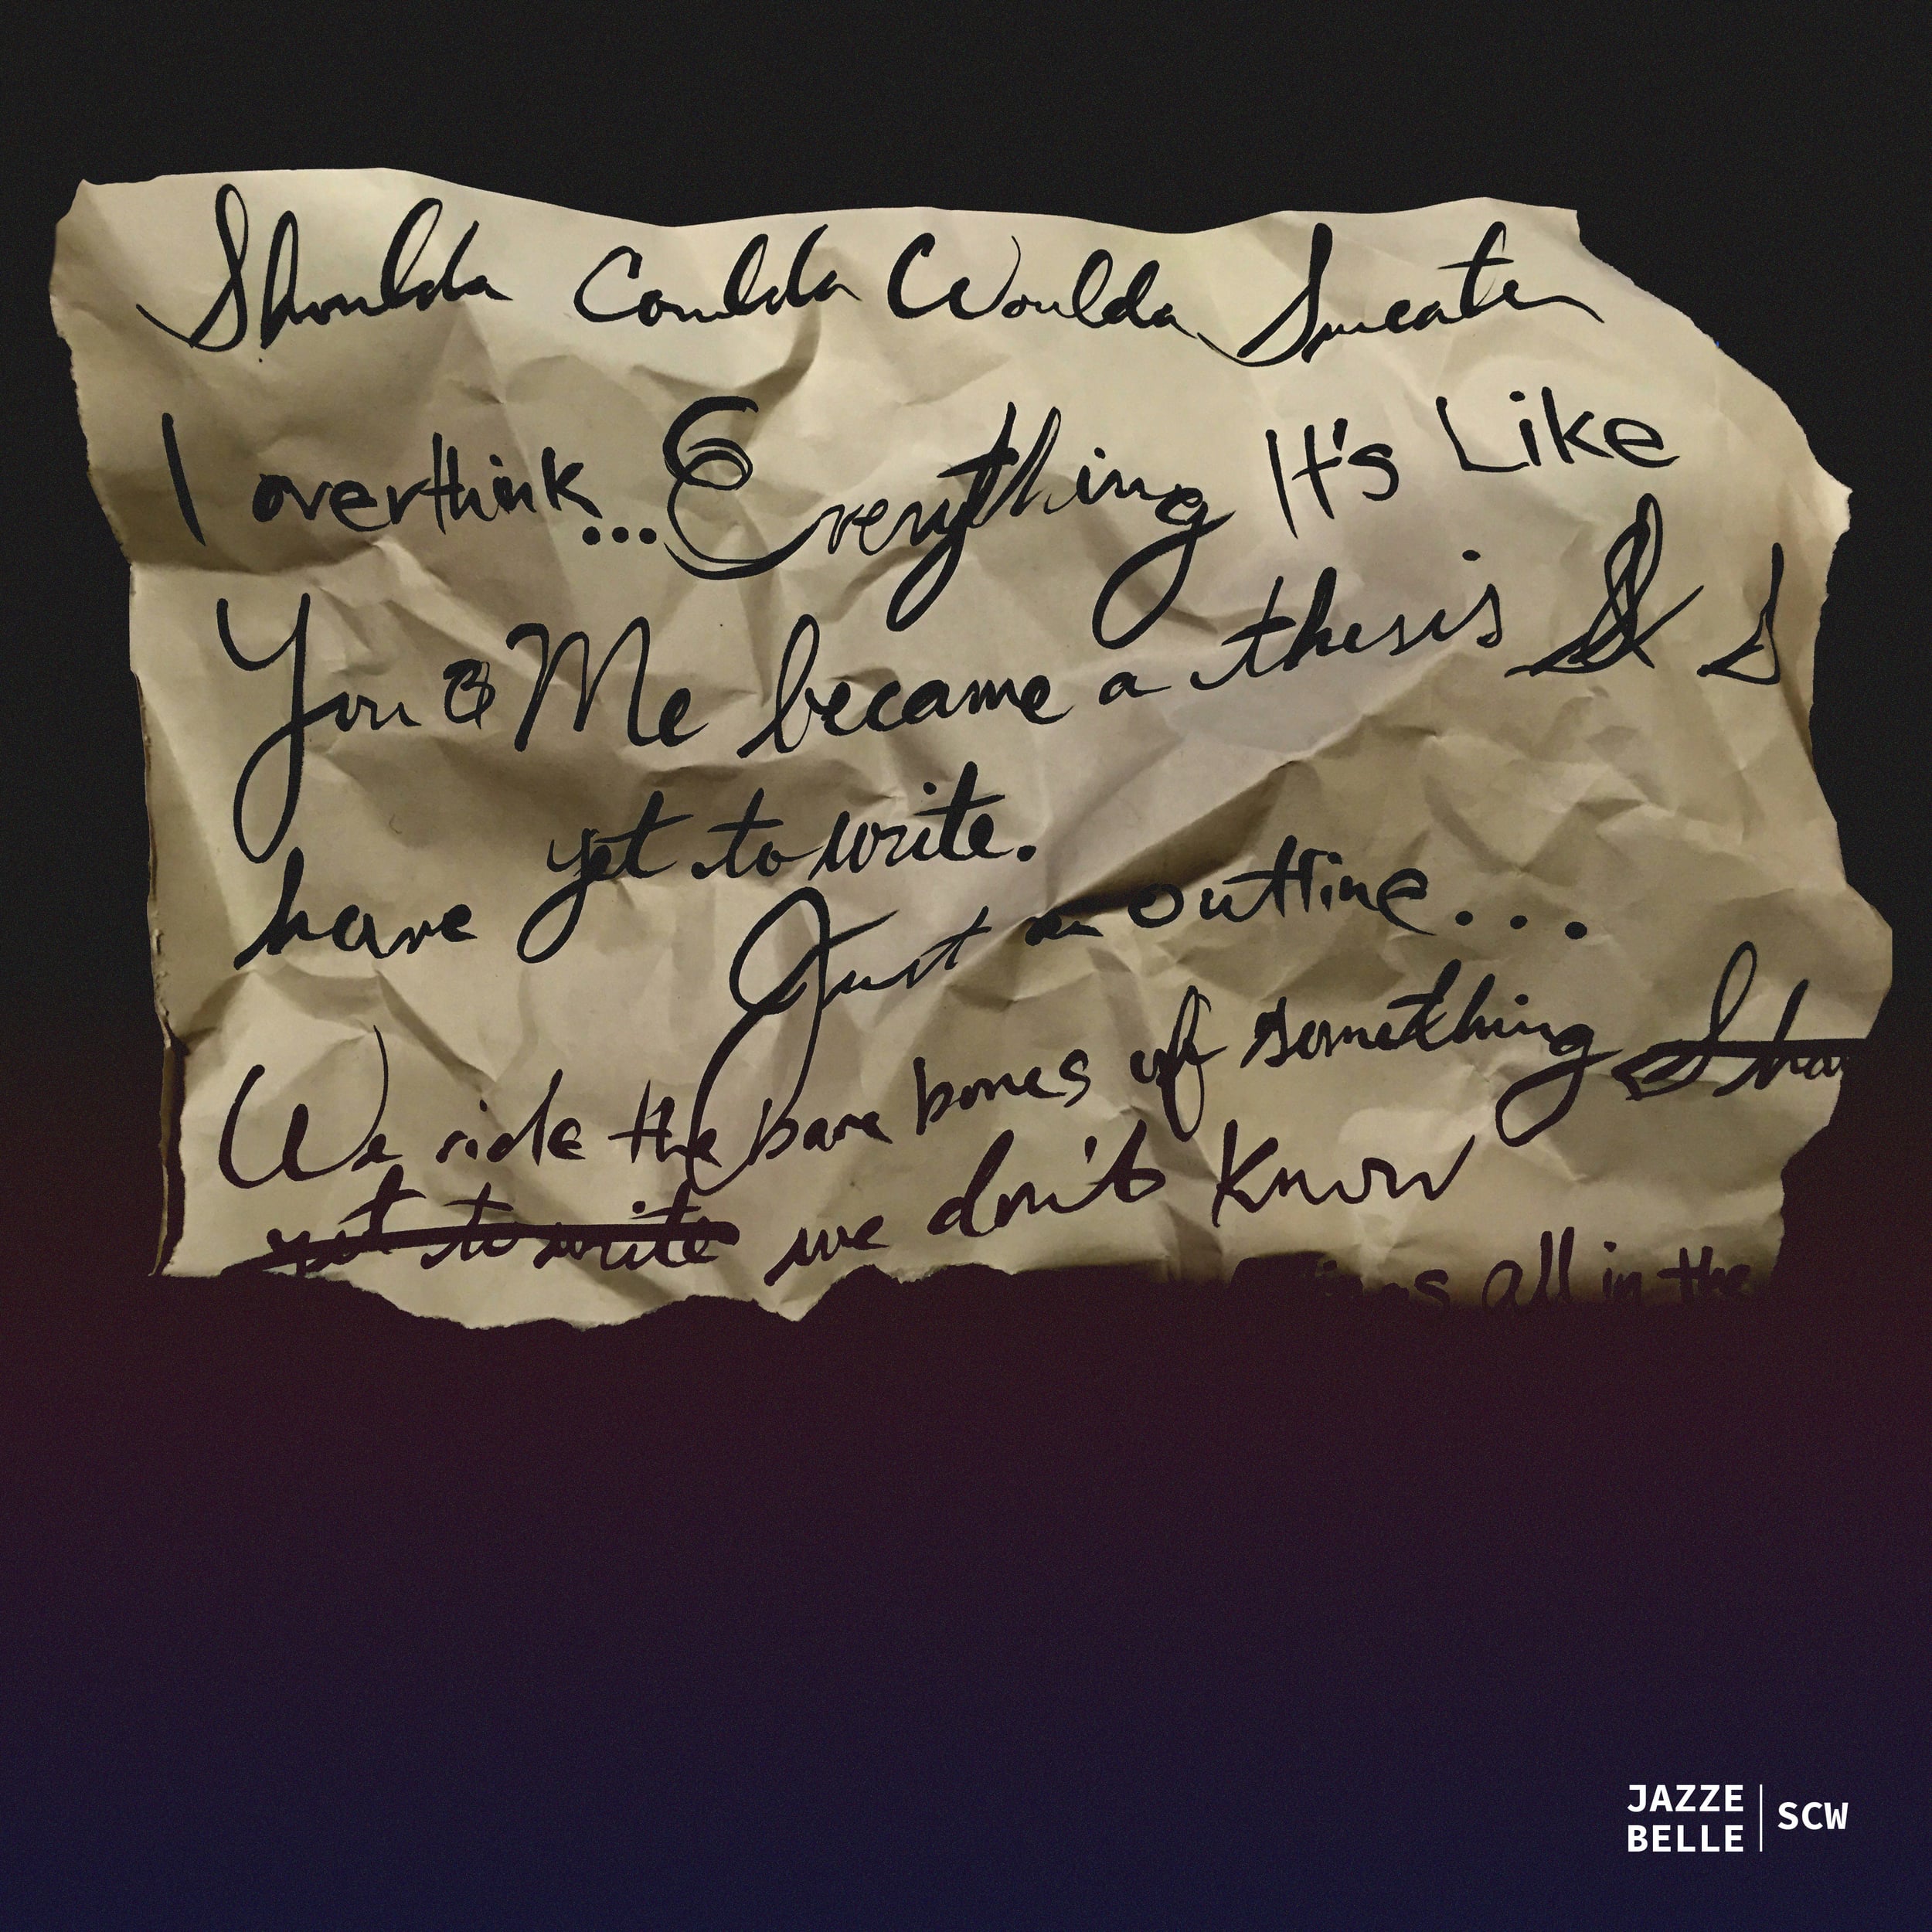 Shoulda Coulda Woulda Sweater
I overthink... Everything It's Like
You & Me became a thesis & I
have yet to write.
Just an outline...
We ride the bare bones of something
yet to write we don't know
all in the
JAZZE
BELLE
SCW